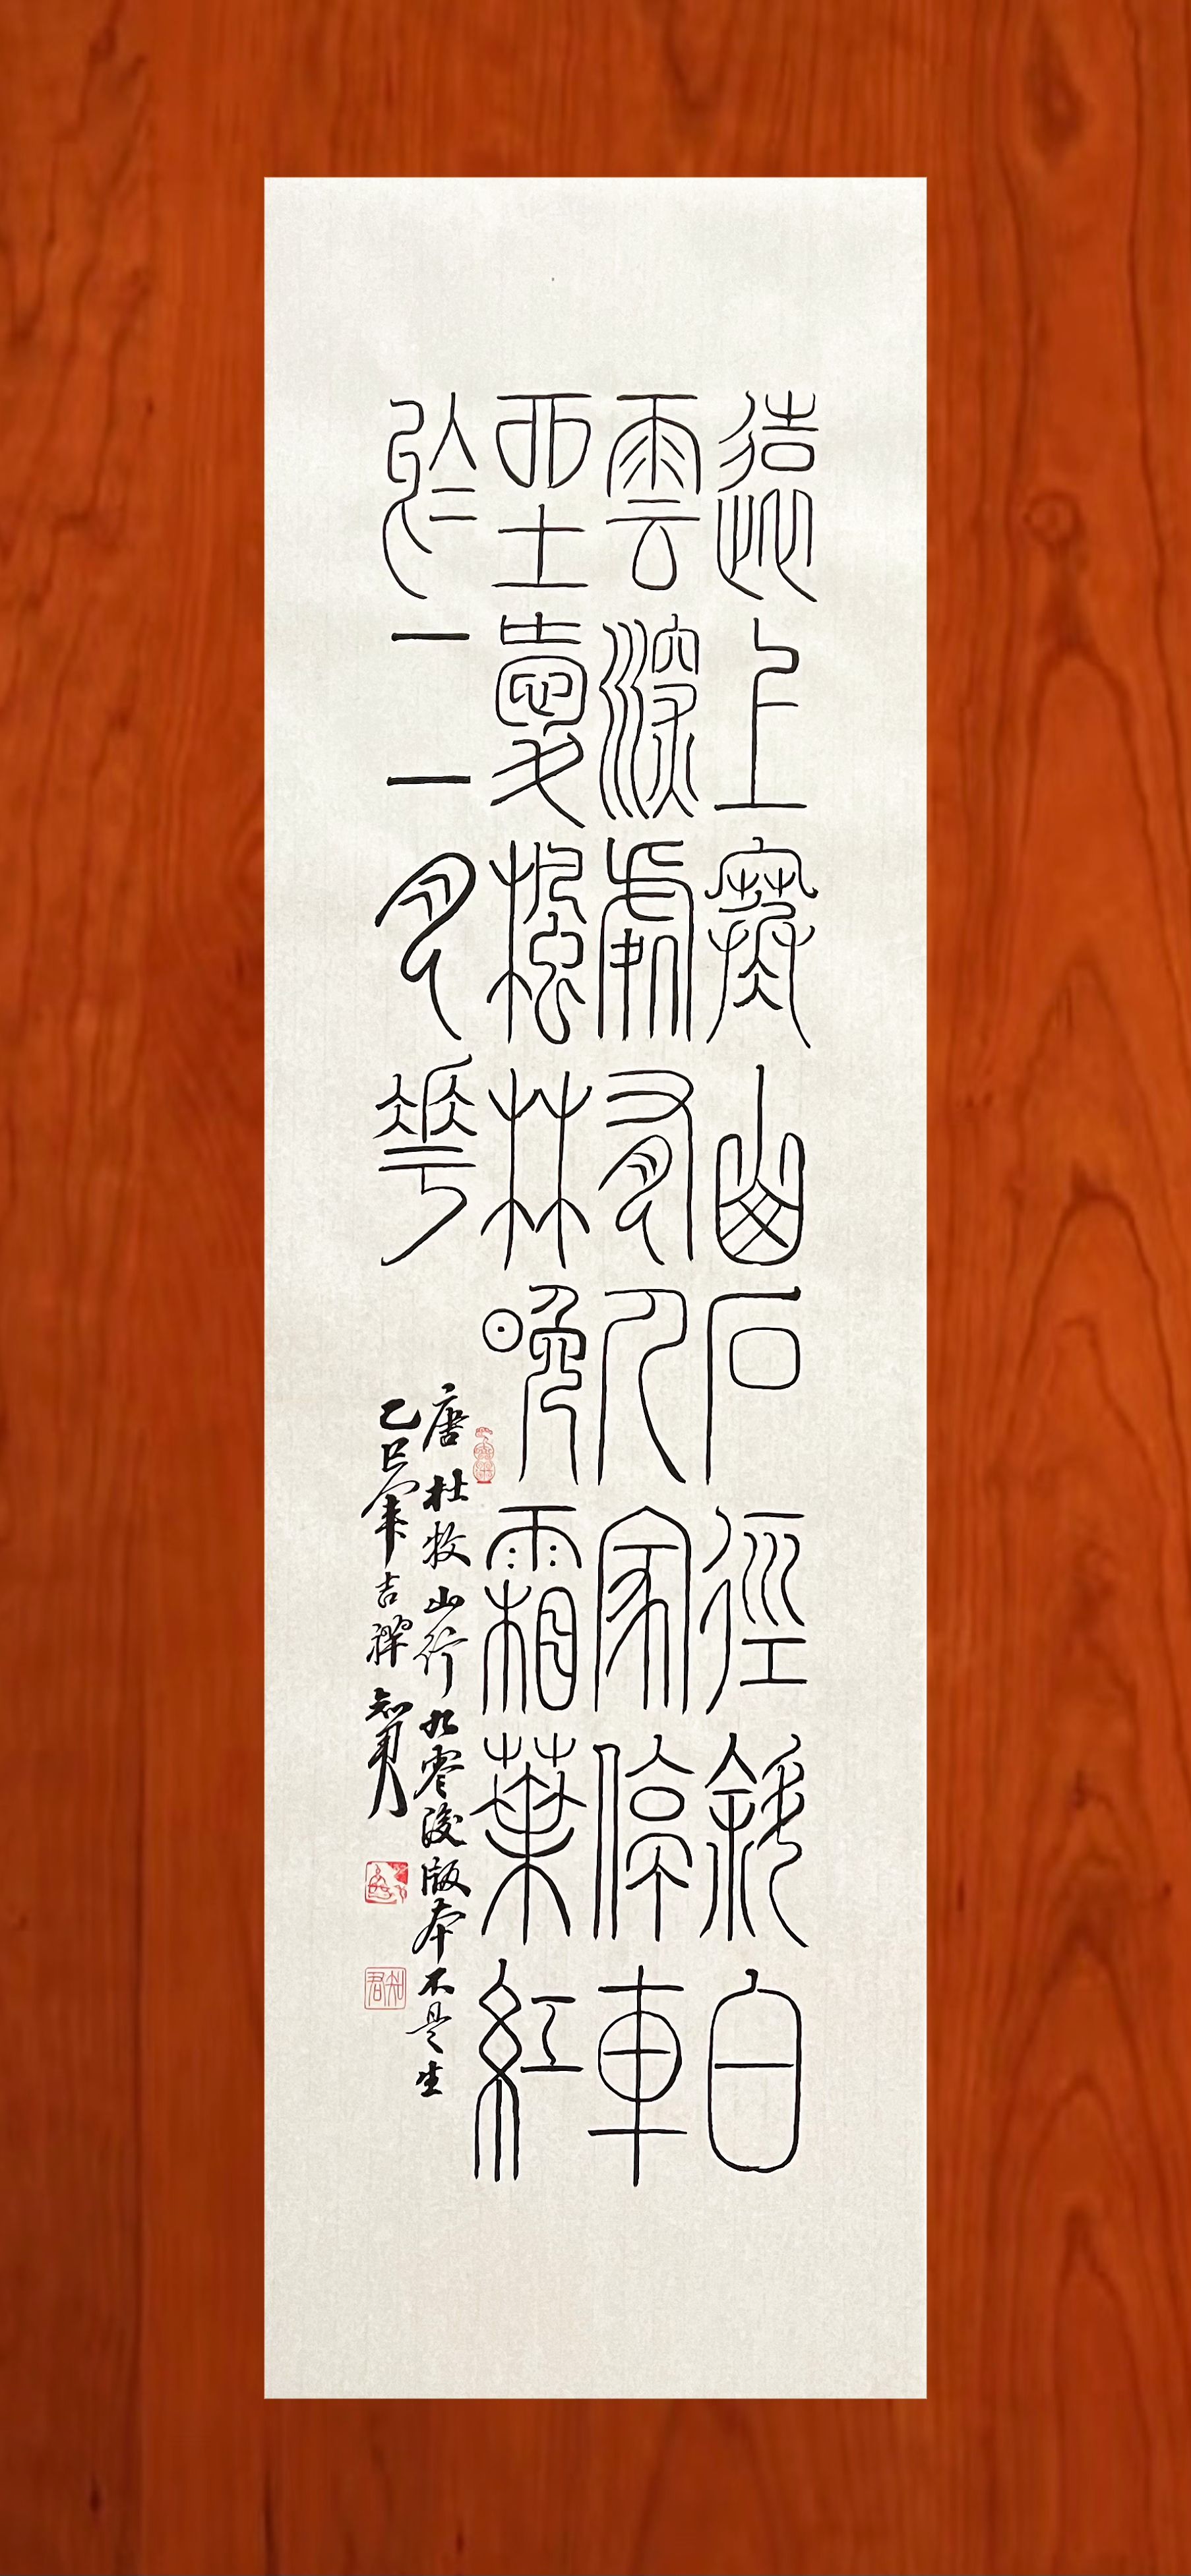 遠上寒山石徑斜白
雲深處有人家停車
坐愛楓林晚霜葉紅
於二月華
唐杜牧山行九零後版本不是生
乙巳年吉祥知
知君